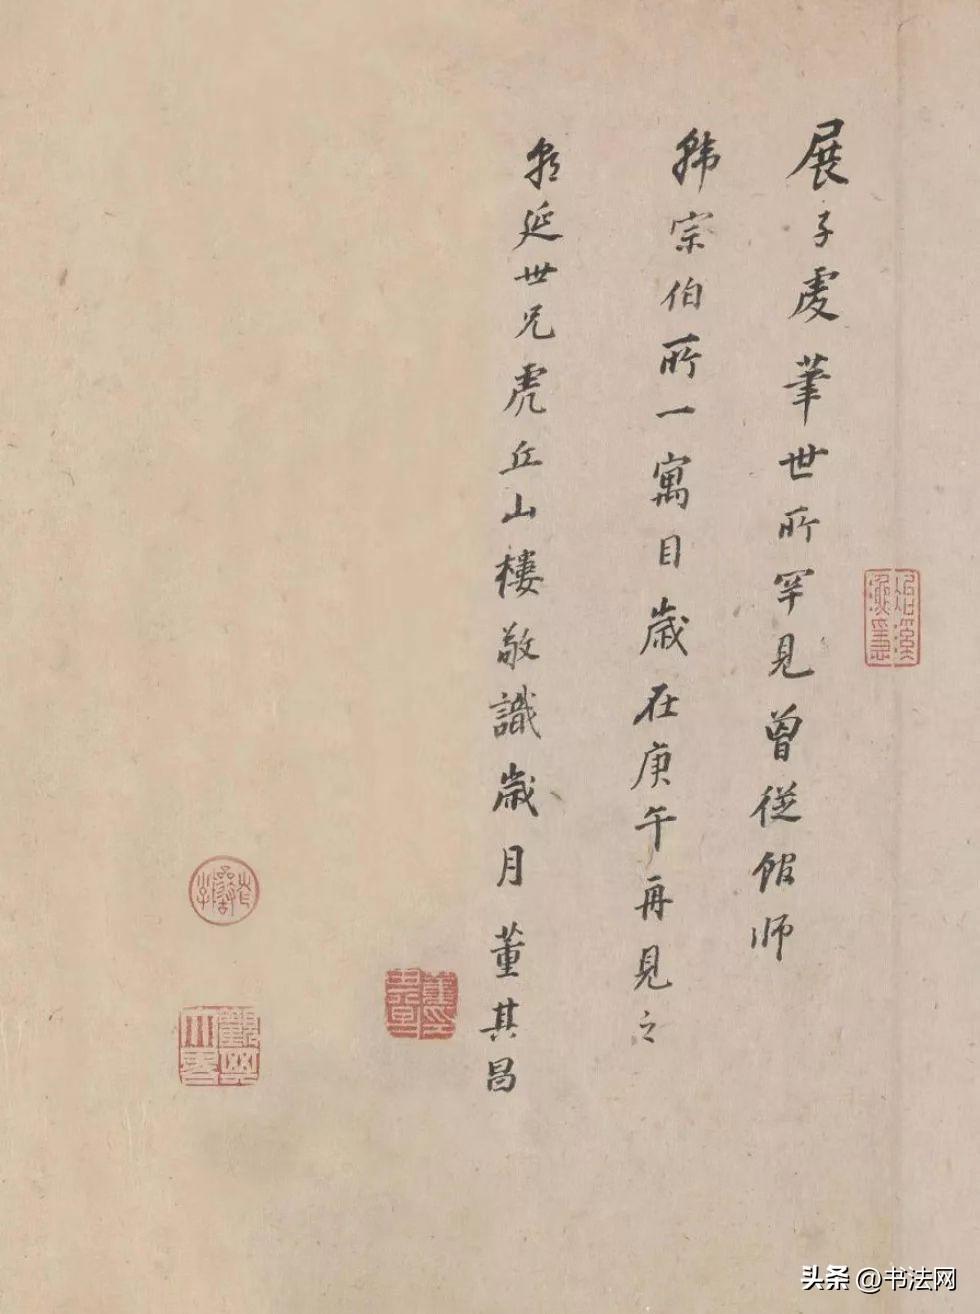 展子虔筆世所罕見曾從館師
韓宗伯所一寓目歲在庚午再見之
朝延世兄虎丘山樓敬識歲月董其昌
头条 @书法网